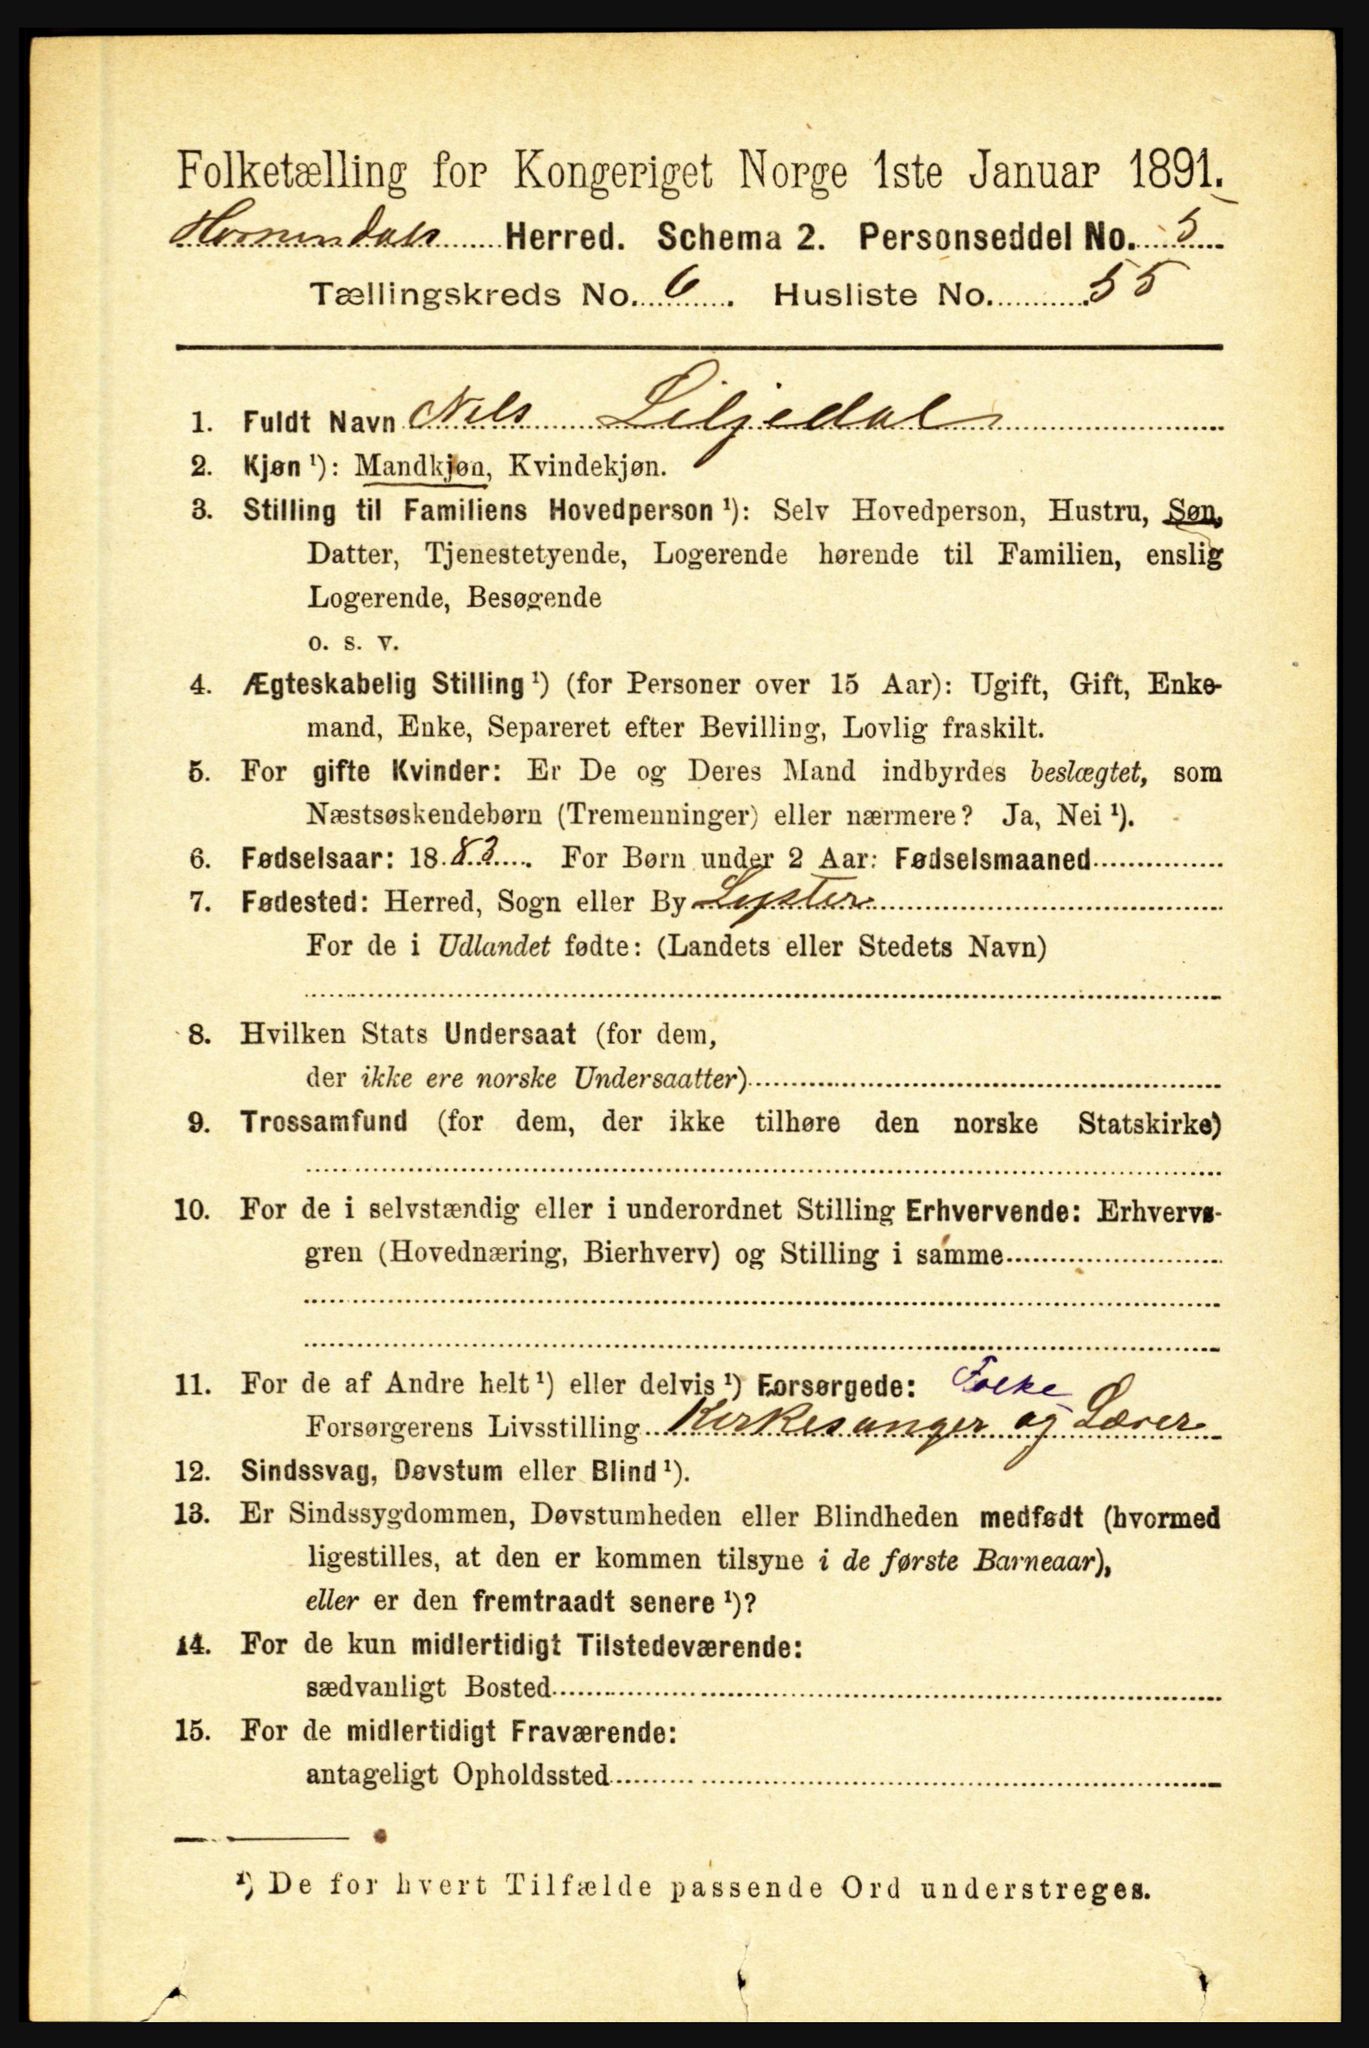 Folketælling for Kongeriget Norge 1ste Januar 1891.
Hornindals Herred. Schema 2. Personseddel No. 5
Tællingskreds No. 6. Husliste No. 55
1. Fuldt Navn Nels Liljedal
2. Kjøn ¹): Mandkjøn, Kvindekjøn.
3. Stilling til Familiens Hovedperson ¹): Selv Hovedperson, Hustru, Søn,
Datter, Tjenestetyende, Logerende hørende til Familien, enslig
Logerende, Besøgende
o. s. v.
4. Ægteskabelig Stilling ¹) (for Personer over 15 Aar): Ugift, Gift, Enke-
mand, Enke, Separeret efter Bevilling, Lovlig fraskilt.
5. For gifte Kvinder: Er De og Deres Mand indbyrdes beslægtet, som
Næstsøskendebørn (Tremenninger) eller nærmere? Ja, Nei ¹).
6. Fødselsaar: 1883. For Børn under 2 Aar: Fødselsmaaned
7. Fødested: Herred, Sogn eller By Lyster
For de i Udlandet fødte: (Landets eller Stedets Navn)
8. Hvilken Stats Undersaat (for dem,
der ikke ere norske Undersaatter)
9. Trossamfund (for dem, der ikke tilhøre den norske Statskirke)
10. For de i selvstændig eller i underordnet Stilling Erhvervende: Erhvervs-
gren (Hovednæring, Bierhverv) og Stilling i samme
11. For de af Andre helt ¹) eller delvis ¹) Forsørgede: Folke
Forsørgerens Livsstilling Kirkesanger og Lærer
12. Sindssvag, Døvstum eller Blind ¹).
13. Er Sindssygdommen, Døvstumheden eller Blindheden medfødt (hvormed
ligestilles, at den er kommen tilsyne i de første Barneaar),
eller er den fremtraadt senere ¹)?
14. For de kun midlertidigt Tilstedeværende:
sædvanligt Bosted
15. For de midlertidigt Fraværende:
antageligt Opholdssted
¹) De for hvert Tilfælde passende Ord understreges.